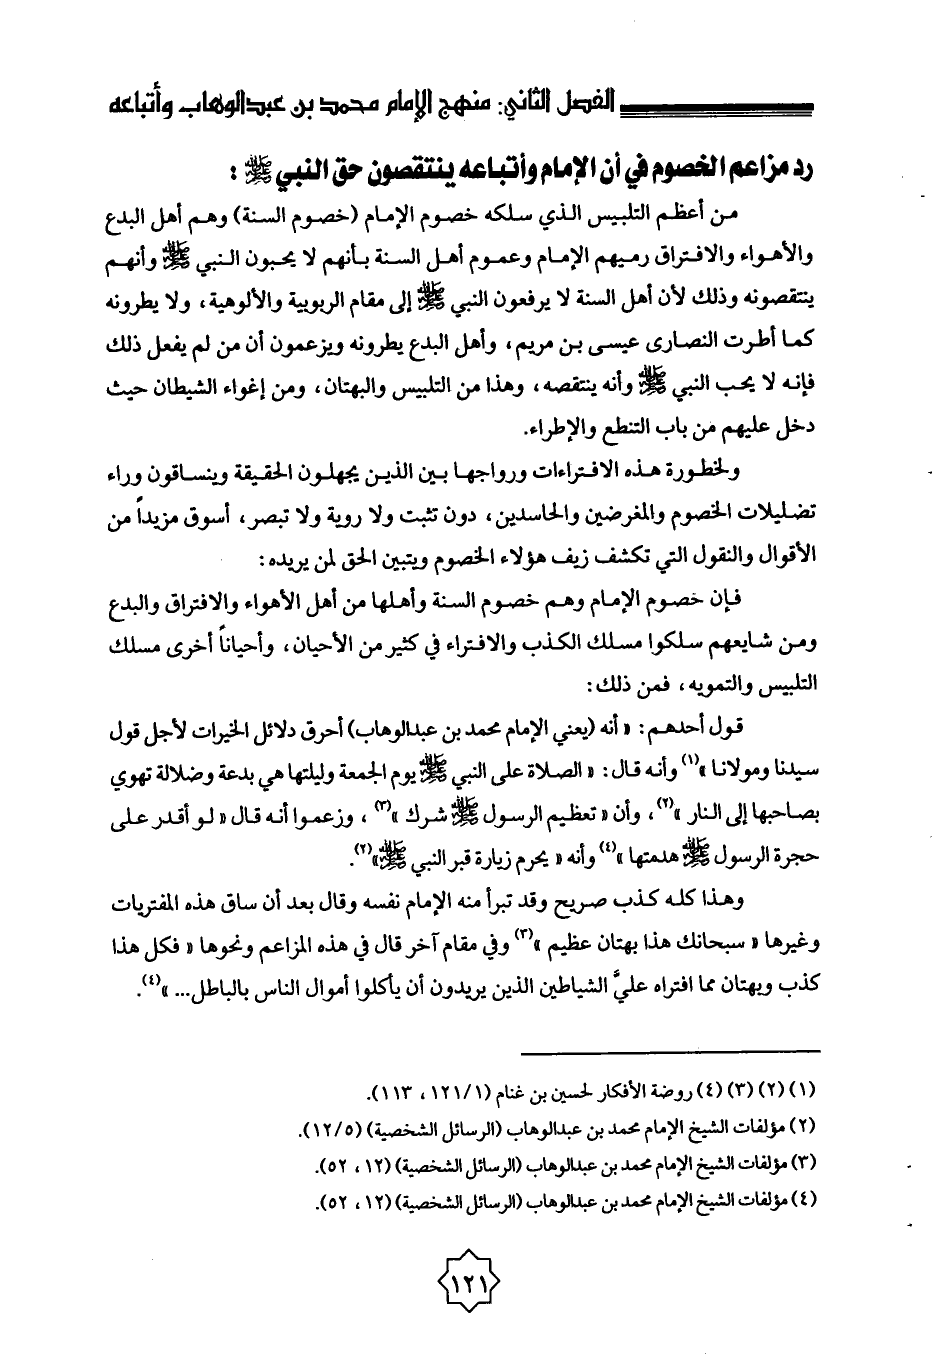 الفصل الثاني: منهج الإمام محمد بن عبدالوهاب وأتباعه
رد مزاعم الخصوم في أن الإمام وأتباعه ينتقصون حق النبي ﷺ :
من أعظم التلبيس الذي سلكه خصوم الإمام (خصوم السنة) وهم أهل البدع
والأهواء والافتراق رميهم الإمام وعموم أهل السنة بأنهم لا يحبون النبي ﷺ وأنهم
ينتقصونه وذلك لأن أهل السنة لا يرفعون النبي ﷺ إلى مقام الربوبية والألوهية، ولا يطرونه
كما أطرت النصارى عيسى بن مريم، وأهل البدع يطرونه ويزعمون أن من لم يفعل ذلك
فإنه لا يحب النبي ﷺ وأنه ينتقصه، وهذا من التلبيس والبهتان، ومن إغواء الشيطان حيث
دخل عليهم من باب التنطع والإطراء.
ولخطورة هذه الافتراءات ورواجها بين الذين يجهلون الحقيقة وينساقون وراء
تضليلات الخصوم والمغرضين والحاسدين، دون تثبت ولا روية ولا تبصر، أسوق مزيداً من
الأقوال والنقول التي تكشف زيف هؤلاء الخصوم ويتبين الحق لمن يريده:
فإن خصوم الإمام وهم خصوم السنة وأهلها من أهل الأهواء والافتراق والبدع
ومن شايعهم سلكوا مسلك الكذب والافتراء في كثير من الأحيان، وأحياناً أخرى مسلك
التلبيس والتمويه، فمن ذلك:
قول أحدهم: « أنه (يعني الإمام محمد بن عبدالوهاب) أحرق دلائل الخيرات لأجل قول
سيدنا ومولانا »(١) وأنه قال: « الصلاة على النبي ﷺ يوم الجمعة وليلتها هي بدعة وضلالة تهوي
بصاحبها إلى النار »(٢)، وأن « تعظيم الرسول ﷺ شرك »(٣)، وزعموا أنه قال « لو أقدر على
حجرة الرسول ﷺ هدمتها »(٤) وأنه « يحرم زيارة قبر النبي ﷺ»(٢).
وهذا كله كذب صريح وقد تبرأ منه الإمام نفسه وقال بعد أن ساق هذه المفتريات
وغيرها « سبحانك هذا بهتان عظيم »(٣) وفي مقام آخر قال في هذه المزاعم ونحوها « فكل هذا
كذب وبهتان مما افتراه عليَّ الشياطين الذين يريدون أن يأكلوا أموال الناس بالباطل... »(٤).
(١) (٢) (٣) (٤) روضة الأفكار لحسين بن غنام (١/ ١٢١، ١١٣).
(٢) مؤلفات الشيخ الإمام محمد بن عبدالوهاب (الرسائل الشخصية) (٥/ ١٢).
(٣) مؤلفات الشيخ الإمام محمد بن عبدالوهاب (الرسائل الشخصية) (١٢، ٥٢).
(٤) مؤلفات الشيخ الإمام محمد بن عبدالوهاب (الرسائل الشخصية) (١٢، ٥٢).
١٢١